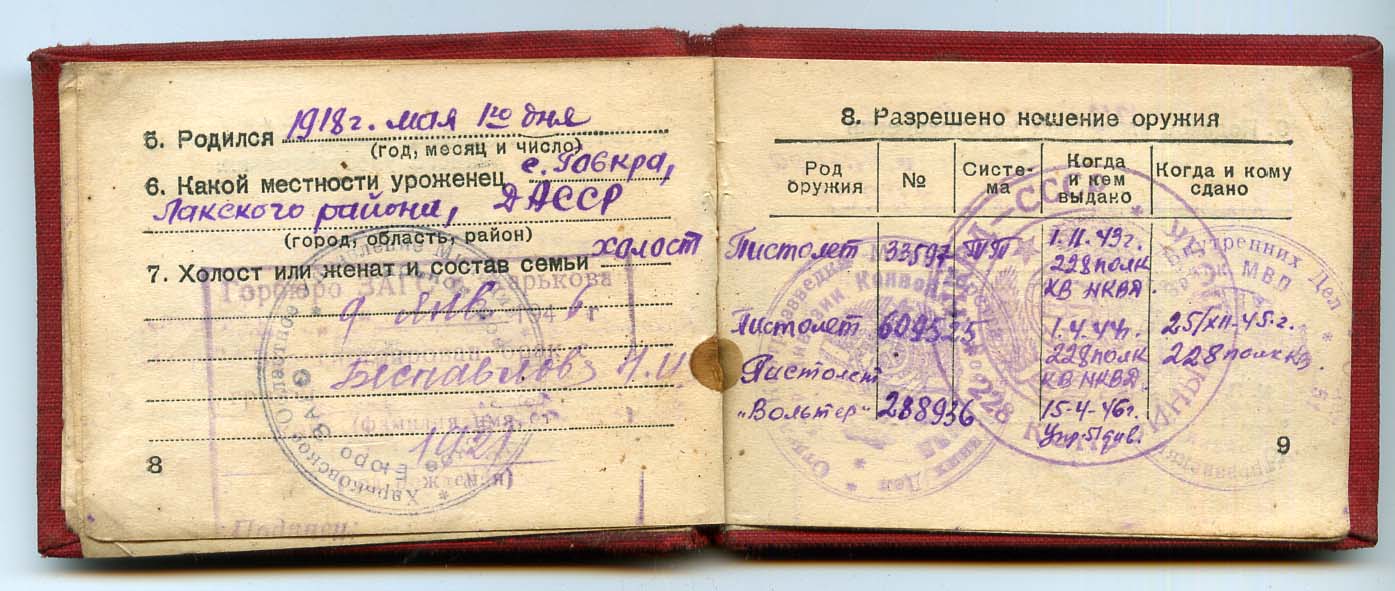 5. Родился 1918 г. мая 1го дня
(год, месяц и число)
6. Какой местности уроженец с. Гавкра,
Лакского района, ДАССР
(город, область, район)
7. Холост или женат и состав семьи холост
Горбюро ЗАГС Харькова
9 янв 1946 г
брак
Беспавлов Н.И.
(фамилия, имя, отч.
1921
Подпись:
Харьковское Областное
Бюро ЗАГС
8
8. Разрешено ношение оружия
Род оружия
№
Систе-ма
Когда и кем выдано
Когда и кому сдано
Пистолет 33597 ТТ 1.II.43г.
228 полк
КВ НКВД.
Пистолет 609525 1.4.44г. 25/XII-45.г.
228 полк 228 полк КВ.
КВ НКВД.
Пистолет
„Вольтер" 288936 15-4-46г.
Упр. 51 див.
СССР
228
Внутренних Дел
МВД
Конвойн
9